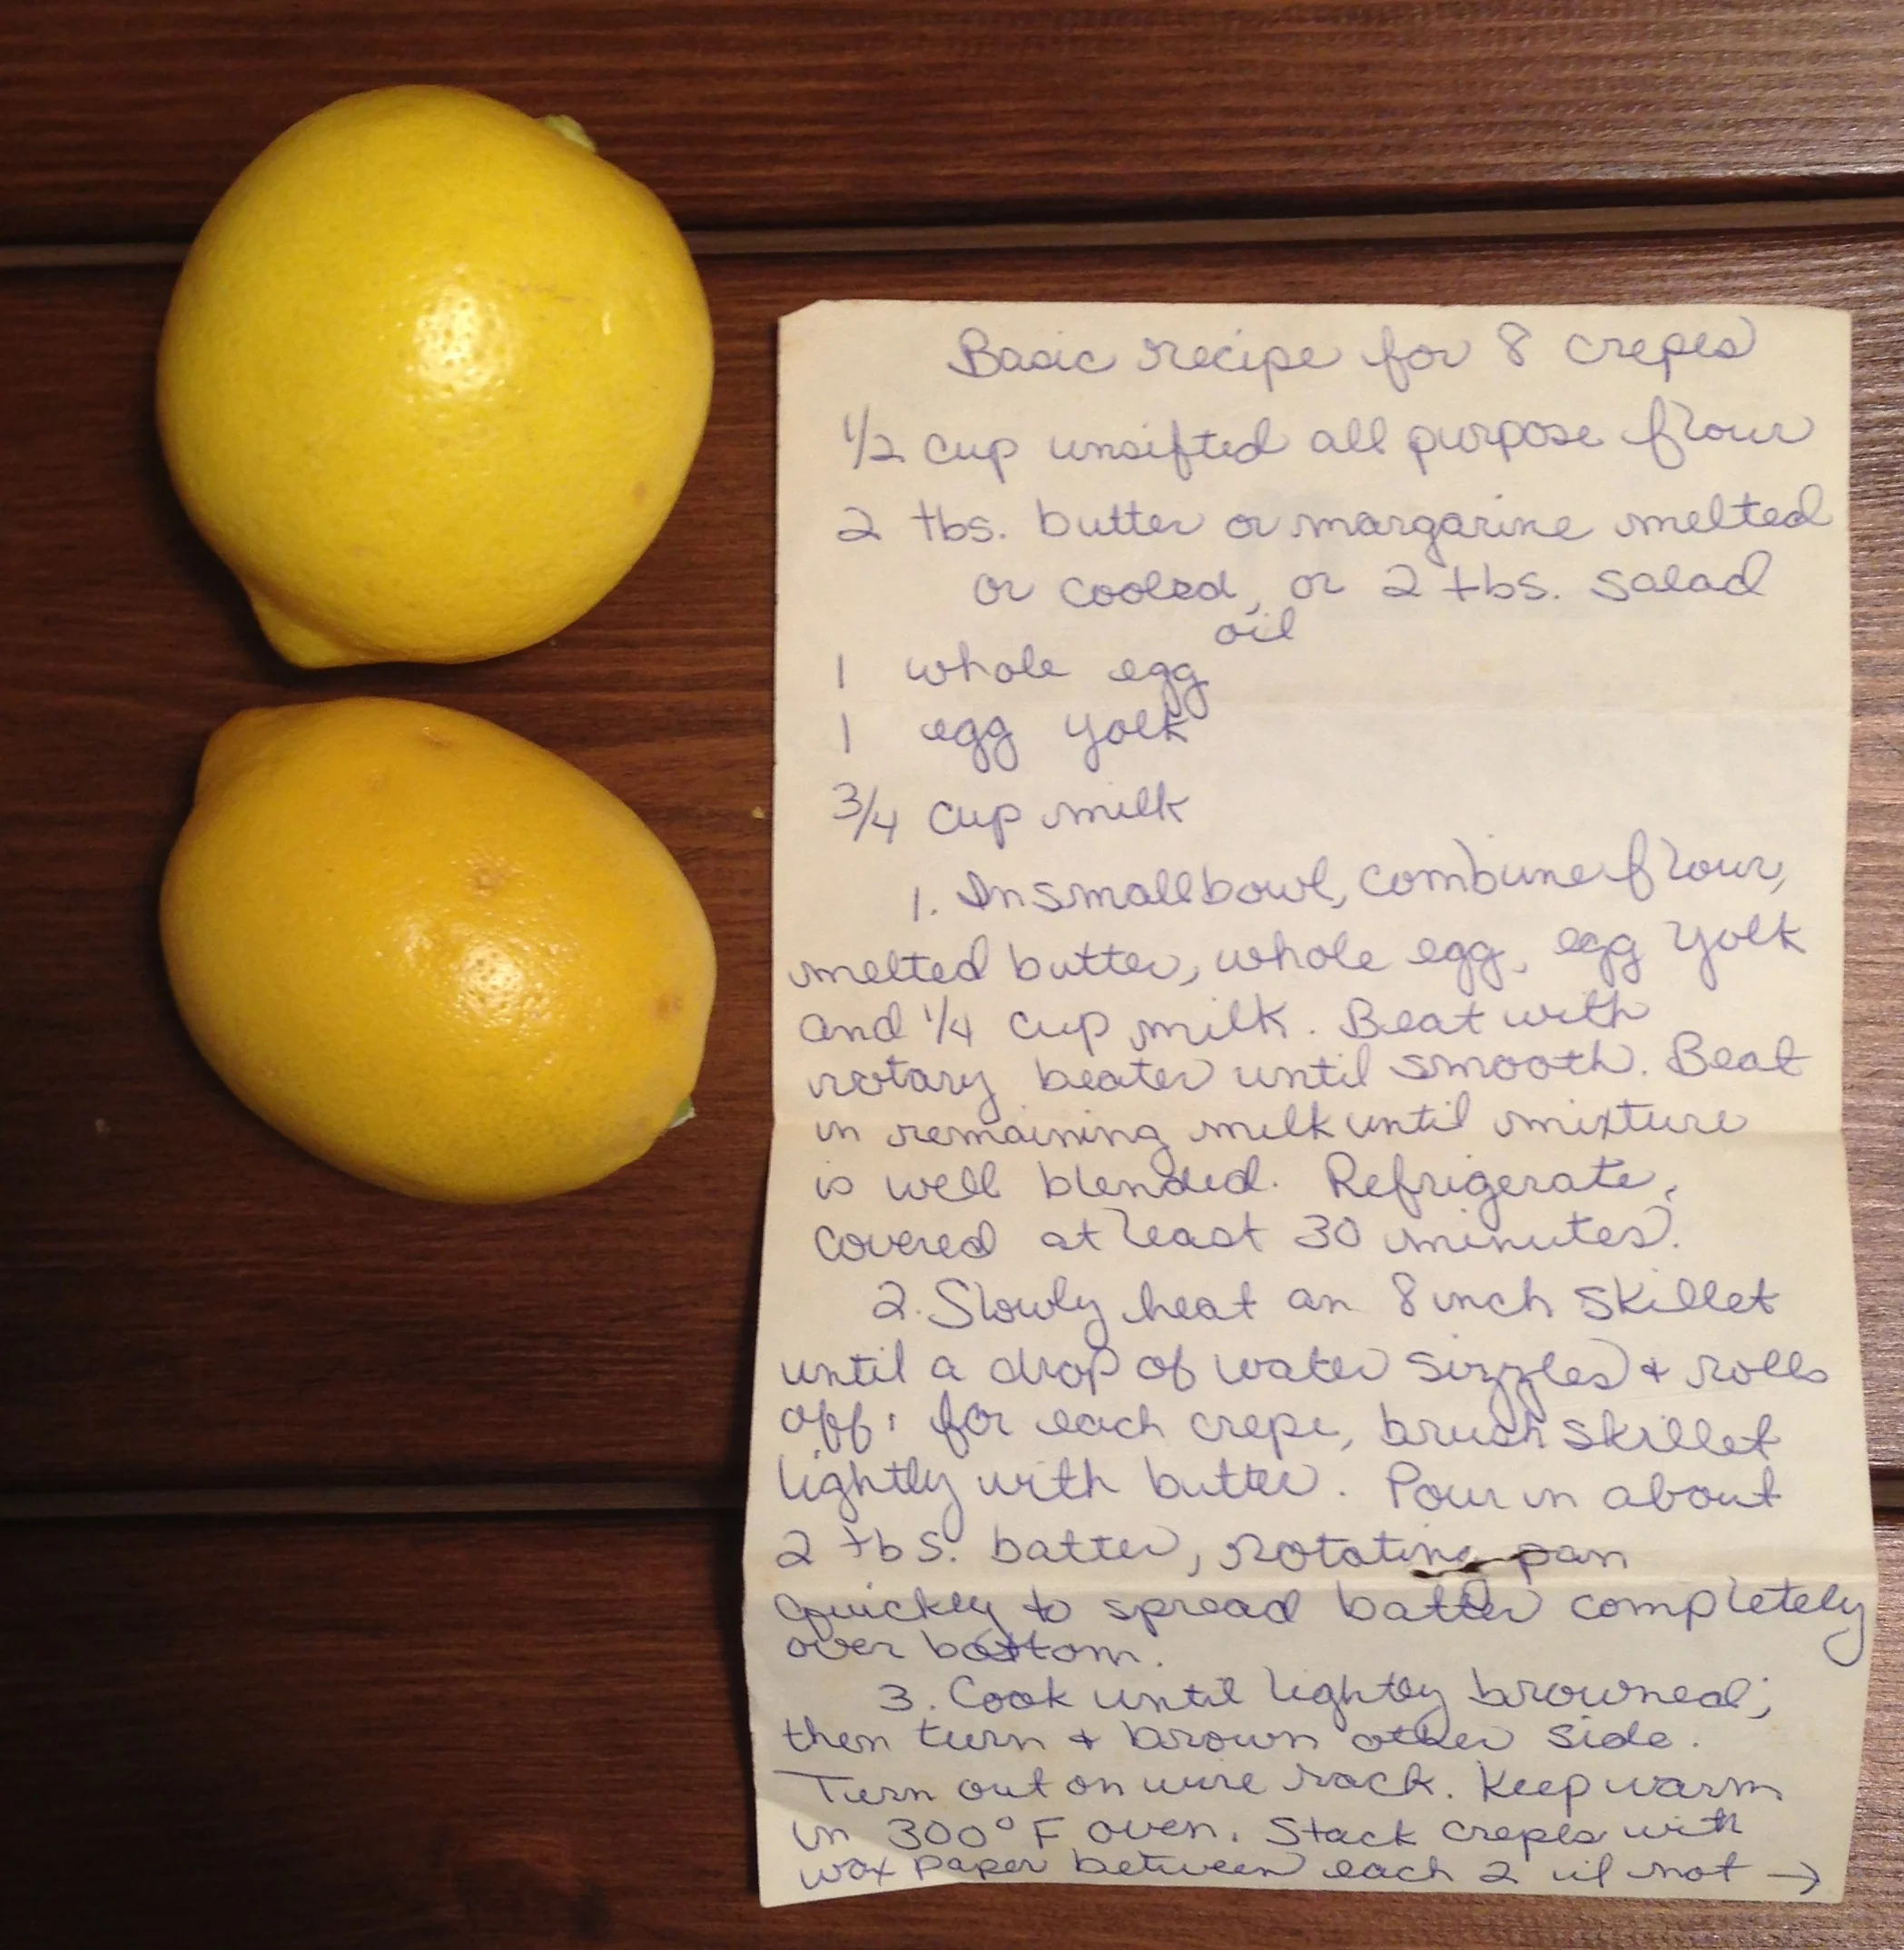 Basic recipe for 8 crepes
1/2 cup unsifted all purpose flour
2 tbs. butter or margarine melted
or cooled, or 2 tbs. salad
oil
1 whole egg
1 egg yolk
3/4 cup milk
1. In small bowl, combine flour,
melted butter, whole egg, egg yolk
and 1/4 cup milk. Beat with
rotary beater until smooth. Beat
in remaining milk until mixture
is well blended. Refrigerate,
covered at least 30 minutes.
2. Slowly heat an 8 inch skillet
until a drop of water sizzles & rolls
off. for each crepe, brush skillet
lightly with butter. Pour in about
2 tbs. batter, rotating pan
quickly to spread batter completely
over bottom.
3. Cook until lightly browned;
then turn & brown other side.
Turn out on wire rack. Keep warm
in 300° F oven. Stack crepes with
wax paper between each 2 if not →